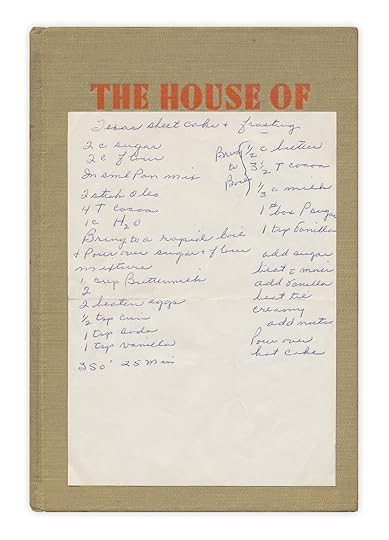 THE HOUSE OF
Texas sheet cake & frosting
2 c sugar
2 c flour
In sml Pan mix
2 stick Oleo
4 T cocoa
1 c H2O
Bring to a rapid boil
& Pour over sugar & flour
mixture
½ cup Buttermilk
2
2 beaten eggs
½ tsp cin
1 tsp soda
1 tsp vanilla
350° 25 min
Bring to Boil
½ c butter
3½ T cocoa
⅓ c milk
1 # box P sugar
1 tsp Vanilla
add sugar
beat c mixer
add Vanilla
beat til
creamy
add nuts
Pour over
hot cake